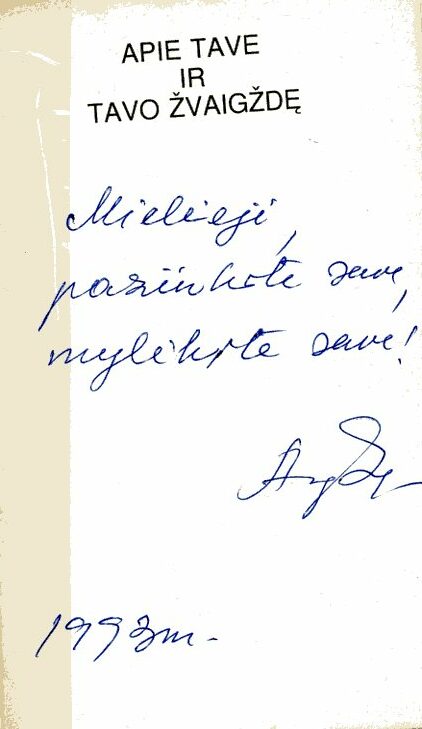 APIE TAVE
IR
TAVO ŽVAIGŽDĘ
Mielieji,
pažinkite save,
mylėkite save!
1993 m.